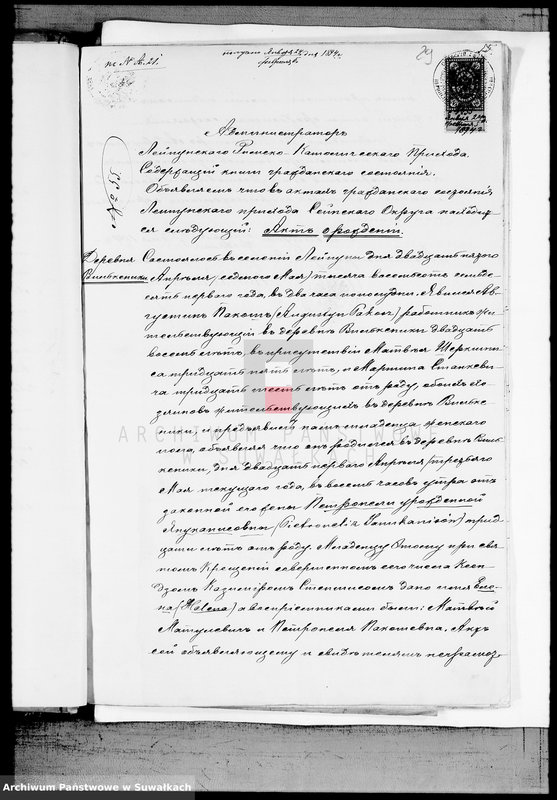 получено Января 24 дня 1894 г.
къ N А. 21.
29
1894 г.
Администраторъ
Лейпунскаго Римско-Католическаго Прихода
Содержащій книги гражданскаго состоянія.
Объявляетъ что въ актахъ гражданскаго состоянія
Лейпунскаго прихода Сейнскаго Округа находит
ся слѣдующій: Актъ о рожденіи.
Деревня
Состоялось въ селеніи Лейпуны дня двадцать пятаго
Апрѣля, седьмаго Мая) тысяча восемьсотъ семьде
сятъ перваго года, въ два часа пополудни. Явился Ав-
густинъ Пакошъ (Augustyn Pakosz) работникъ жи
тельствующій въ деревнѣ двадцать
восемь лѣтъ, въ присутствіи Матвѣя
са тридцать пять лѣтъ, и Мартина Станкеви
ча тридцать шесть лѣтъ отъ роду, обоихъ хо
зяевъ жительствующихъ въ деревнѣ
и предъявилъ намъ младенца женскаго
пола, объявляя что онъ родился въ деревнѣ
дня двадцать перваго Апрѣля (третьяго
Мая текущаго года, въ восемь часовъ утра отъ
законной его жены Петронели урожденной
(Pietronela) трид
цати лѣтъ отъ роду. Младенцу этому при свя
томъ Крещеніи совершенномъ сего числа Ксен
дзомъ Казиміромъ дано имя Еле-
на (Helena) а воспріемниками были: Матвѣй
Матулевичъ и Петронеля Пакошевна. Актъ
сей объявляющему и свидѣтелямъ неграмот-
ARCHIWUM PAŃSTWOWE
W SUWAŁKACH
Archiwum Państwowe w Suwałkach